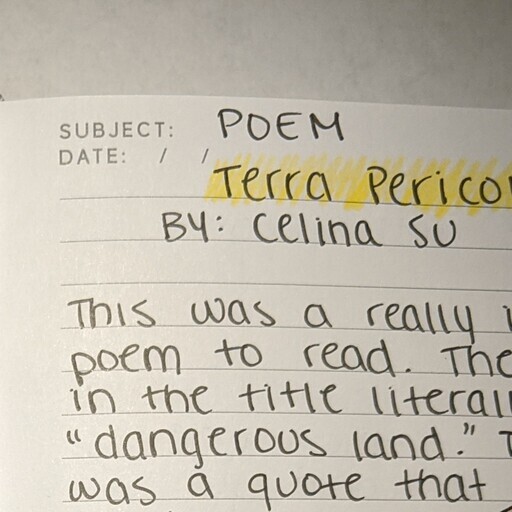 SUBJECT: POEM
DATE: / /
Terra
BY: Celina SU
This was a really
poem to read. The
in the title
"dangerous land."
was a quote that